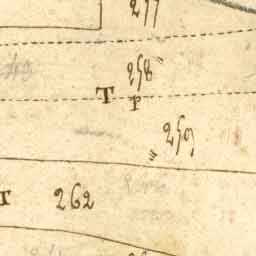 277
258
T P
259
T 262